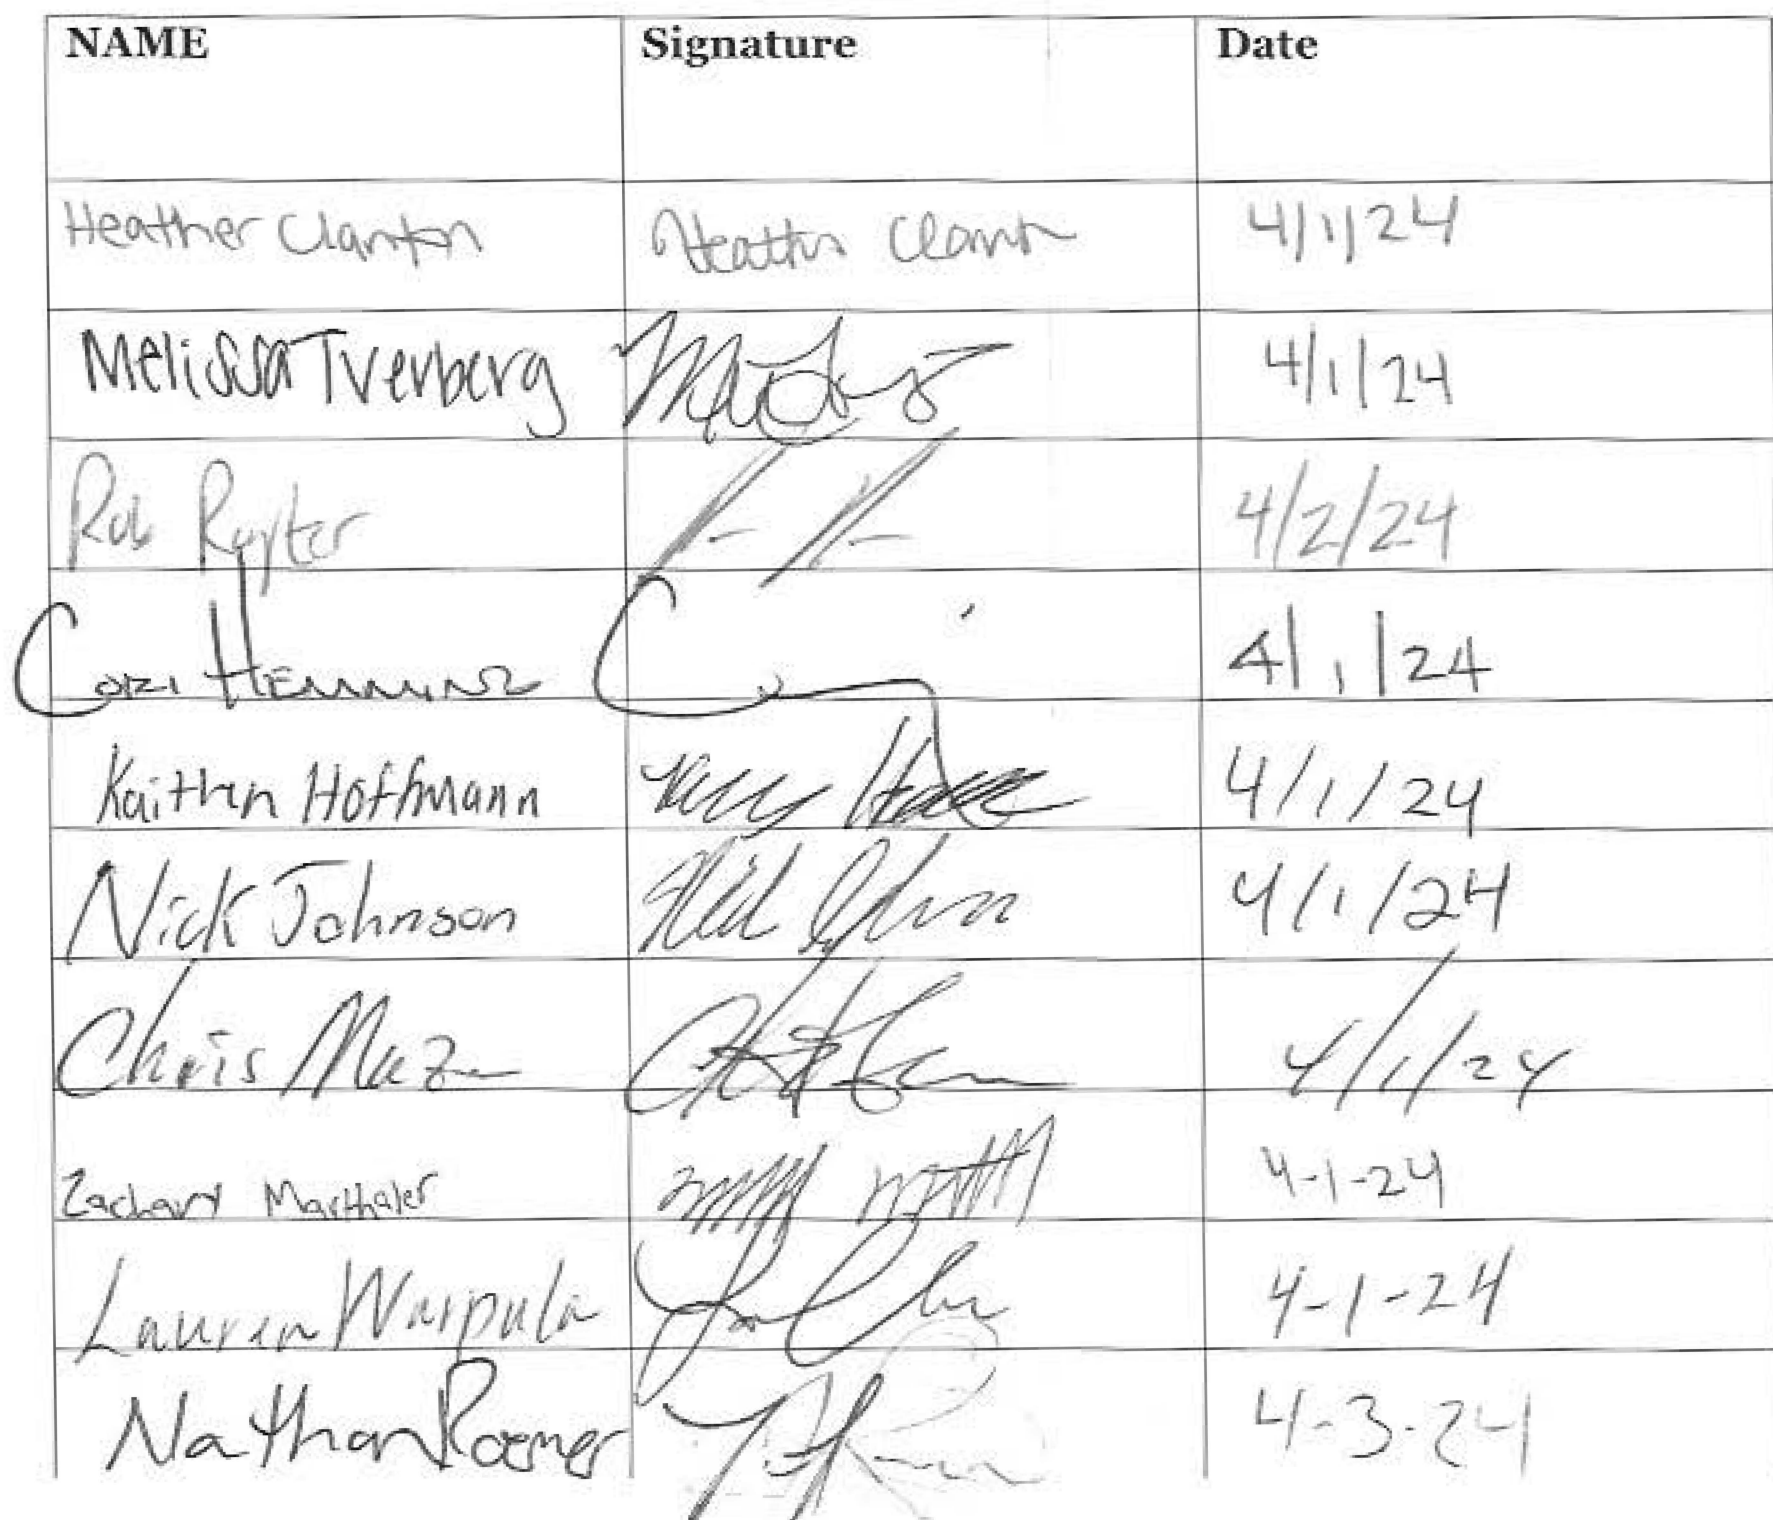 NAME Signature Date
Heather Clanton Heather Clanton 4/1/24
Melissa Tverberg 4/1/24
Rob Ruyter 4/2/24
Cori Hemming 4/1/24
Kaitlyn Hoffmann 4/1/24
Nick Johnson Nick Johnson 4/1/24
Chris Maza 4/1/24
Zachary Marthaler 4-1-24
Lauren Warpula 4-1-24
Nathan Roemer 4-3-24